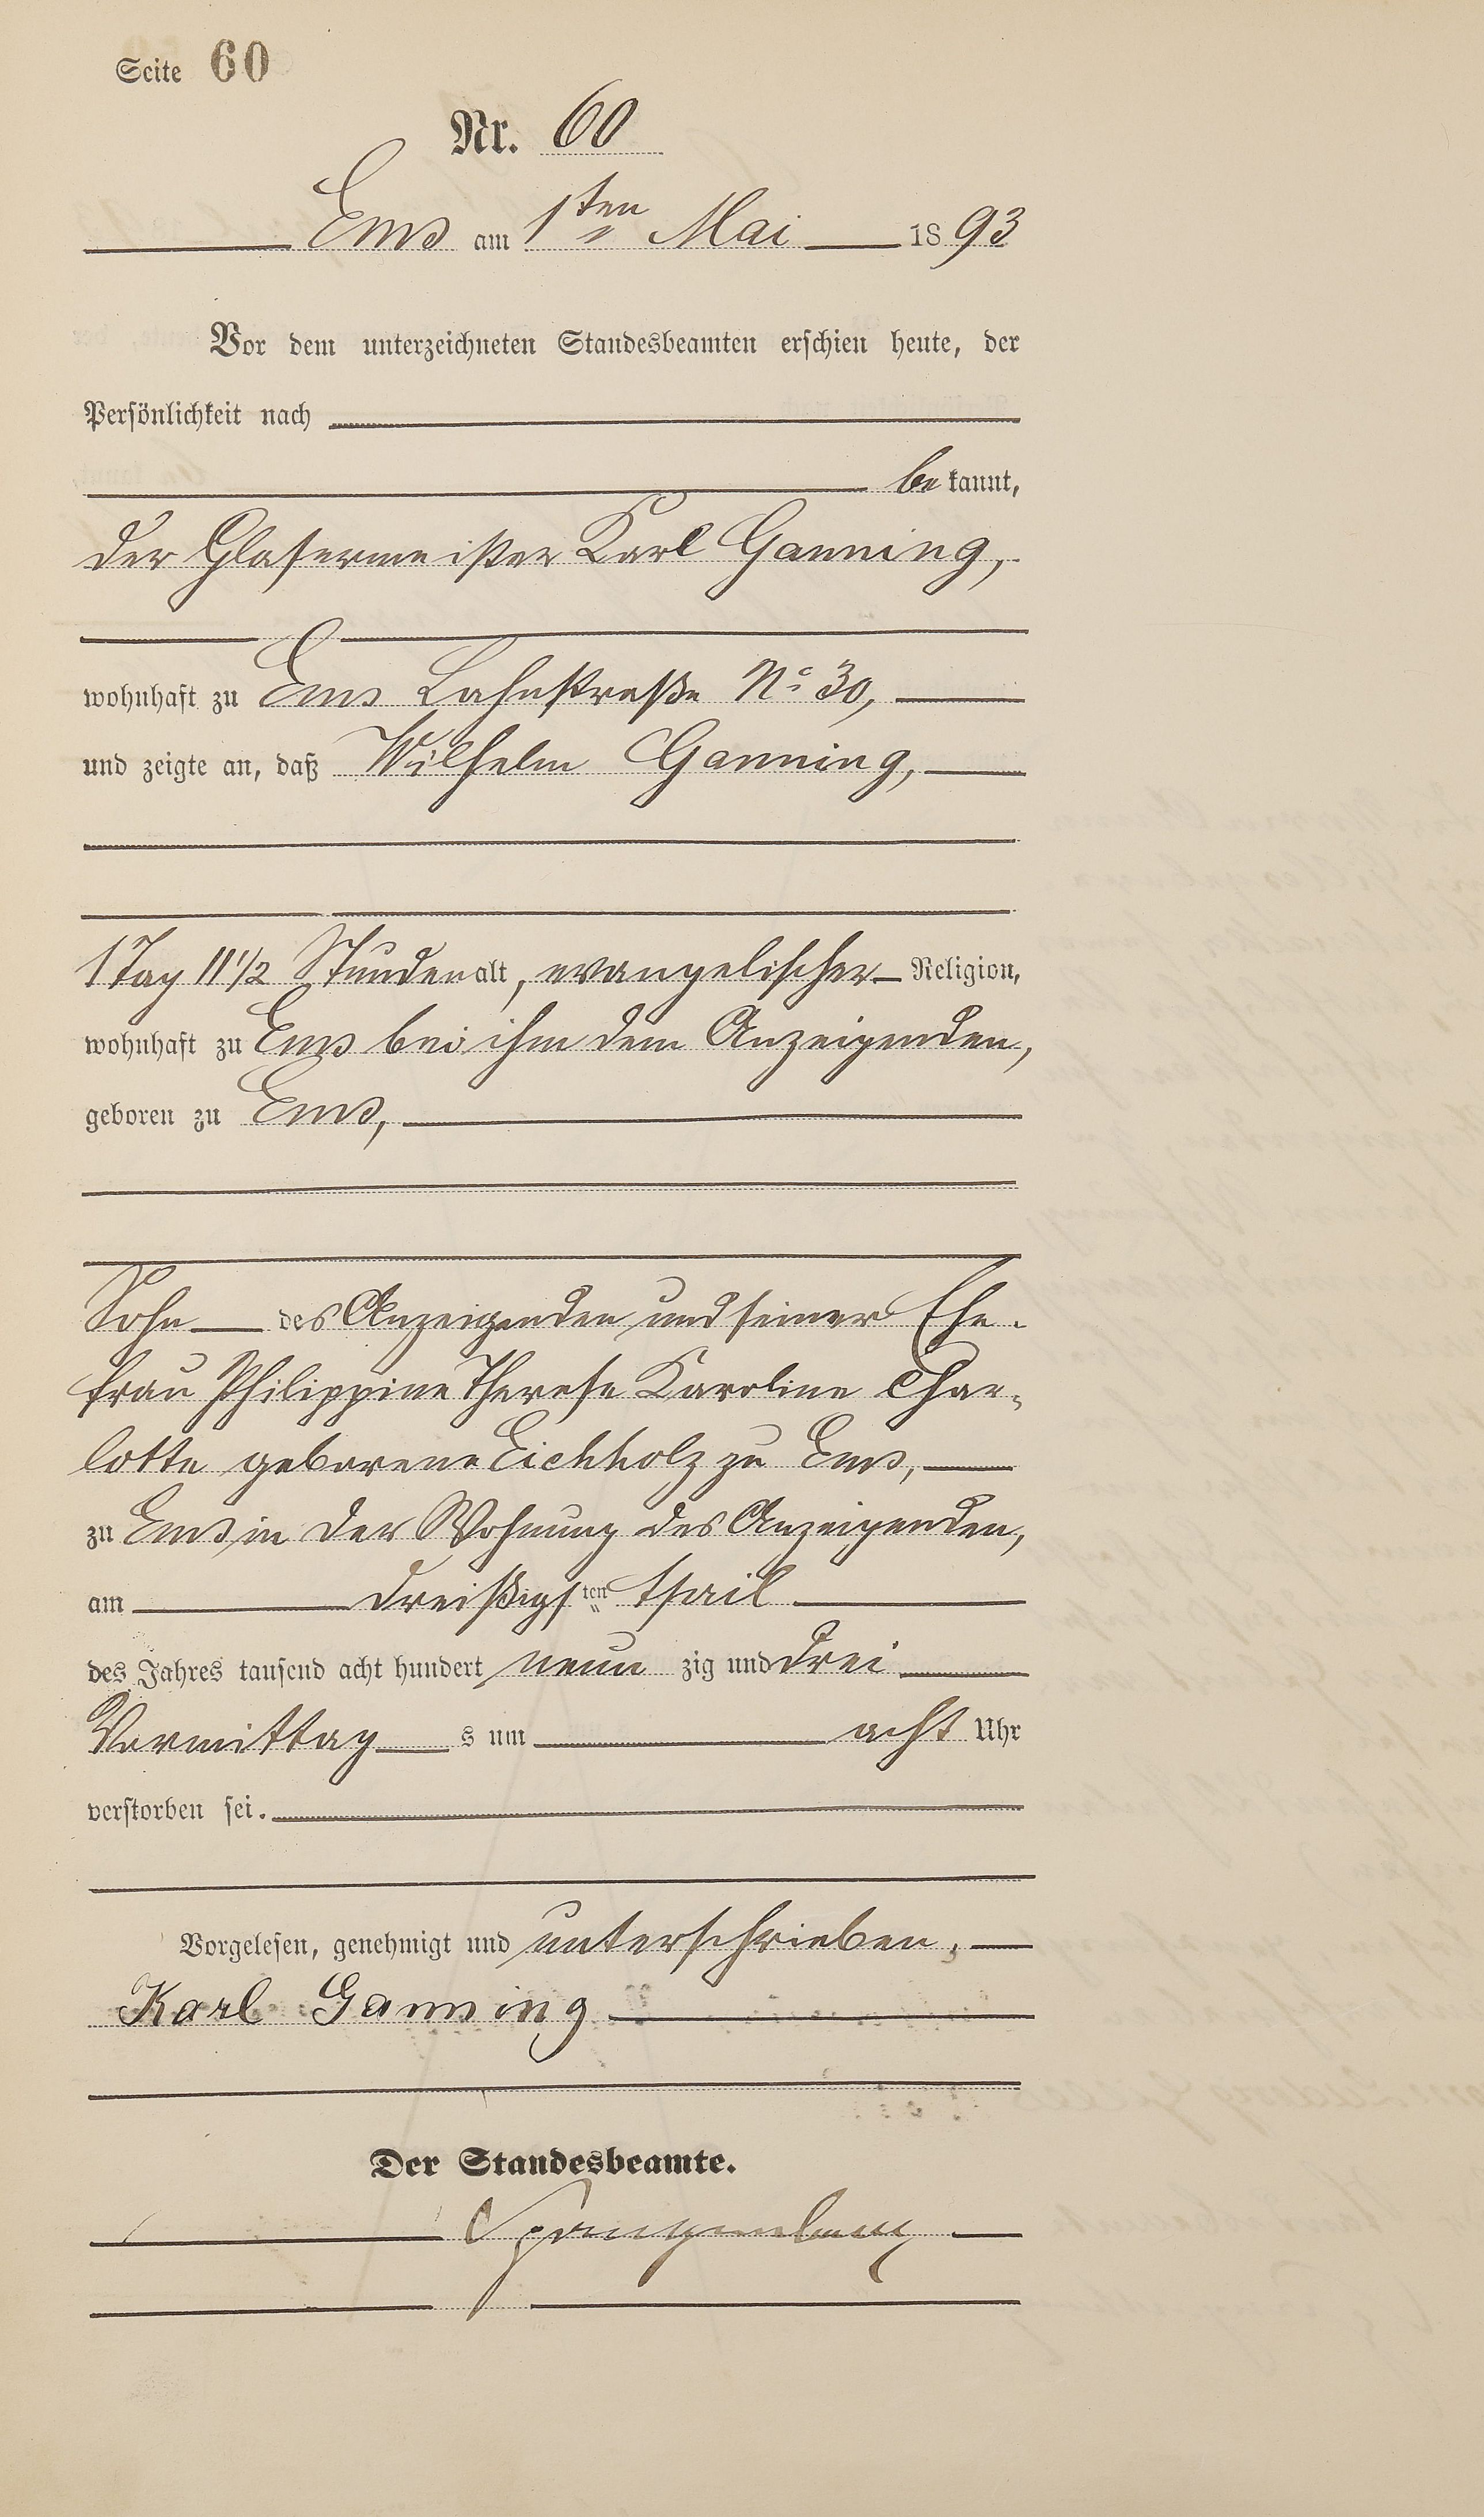 Seite 60
Nr. 60
Ems am 1ten Mai 1893
Vor dem unterzeichneten Standesbeamten erschien heute, der
Persönlichkeit nach
bekannt,
der Glasermeister Karl Ganning,
wohnhaft zu Ems Lahnstraße No 30,
und zeigte an, daß Wilhelm Ganning,
1 Tag 11 1/2 Stunden alt, evangelischer Religion,
wohnhaft zu Ems bei ihm dem Anzeigenden,
geboren zu Ems,
Sohn des Anzeigenden und seiner Ehe-
frau Philippine Therese Karoline Char-
lotte geborene Eichholz zu Ems,
zu Ems in der Wohnung des Anzeigenden,
am dreißigsten April
des Jahres tausend acht hundert neunzig und drei
Vormittags um acht Uhr
verstorben sei.
Vorgelesen, genehmigt und unterschrieben,
Karl Ganning
Der Standesbeamte.